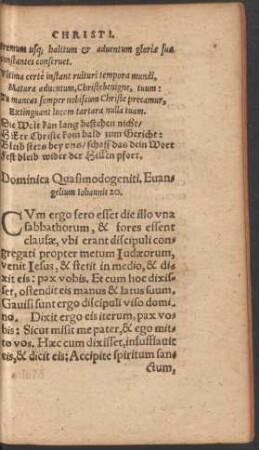 CHRISTI.
tremum usq; halitum & aduentum gloriæ suæ
constantes conseruet.
Vltima certè instant ruituri tempora mundi,
Matura aduentum, Christe benigne, tuum:
Tu maneas semper nobiscum Christe precamur,
Extinguant lucem tartara nulla tuam.
Die Welt kan lang bestehen nicht/
HErr Christe kom bald zum Gericht:
Bleib stets bey vns/ schaff das dein Wort
Fest bleib wider der Hellen pfort.
Dominica Quasimodogeniti, Euan-
gelium Iohannis 20.
CVm ergo sero esset die illo vna
sabbathorum, & fores essent
clausæ, vbi erant discipuli con-
gregati propter metum Iudæorum,
venit Iesus, & stetit in medio, & di-
xit eis: pax vobis. Et cum hoc dixis-
set, ostendit eis manus & latus suum,
Gauisi sunt ergo discipuli viso domi-
no. Dixit ergo eis iterum, pax vo-
bis: Sicut misit me pater, & ego mit-
to vos. Hæc cum dixisset, insufflauit
eis, & dicit eis: Accipite spiritum san-
ctum,